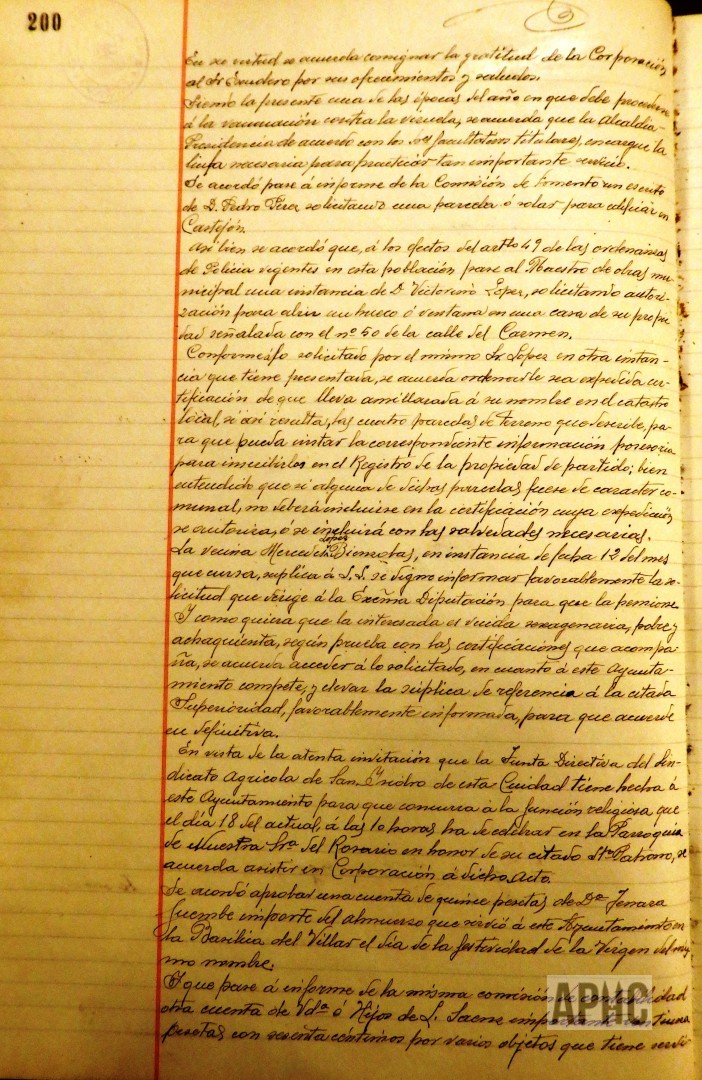 200
En su virtud se acuerda consignar la gratitud de la Corporación
al Sr Escudero por sus ofrecimientos y saludos.
Siendo la presente una de las épocas del año en que debe procederse
á la vacunación contra la viruela, se acuerda que la Alcaldia-
Presidencia de acuerdo con los Sres facultativos titulares, encargue la
linfa necesaria para practicar tan importante servicio.
Se acordó pase á informe de la Comisión de Fomento un escrito
de D. Pedro Pérez solicitando una parcela ó solar para edificar en
Castejón.
Asi bien se acordó que, á los efectos del artto 49 de las ordenanzas
de Policia vigentes en esta población pase al Maestro de obras mu-
nicipal una instancia de D Victorino López, solicitando autori-
zación para abrir un hueco ó ventana en una casa de su propie-
dad señalada con el nº 50 de la calle del Carmen.
Conforme á lo solicitado por el mismo Sr López en otra instan-
cia que tiene presentada, se acuerda ordenar le sea expedida cer-
tificación de que lleva amillarada á su nombre en el catastro
local, si asi resulta, las cuatro parcelas de terreno que describe, pa-
ra que pueda instar la correspondiente información posesoria
para inscribirlas en el Registro de la propiedad de partido; bien
entendido que si alguna de dichas parcelas fuese de caracter co-
munal, no deberá incluirse en la certificación cuya expedición
se autoriza, ó se incluirá con las salvedades necesarias.
La vecina Mercedes López Bienzobas, en instancia de fecha 12 del mes
que cursa, suplica á S.S. se digne informar favorablemente la so-
licitud que dirige á la Excma Diputación para que la pensione
Y como quiera que la interesada es viuda sexagenaria, pobre y
achaquienta, según prueba con las certificaciones que acompa-
ña, se acuerda acceder á lo solicitado, en cuanto á este Ayunta-
miento compete, y elevar la súplica de referencia á la citada
Superioridad, favorablemente informada, para que acuerde
en definitiva.
En vista de la atenta invitación que la Junta Directiva del Sin-
dicato Agricola de San Isidro de esta Ciudad tiene hecha á
este Ayuntamiento para que concurra á la función religiosa, que
el día 18 del actual, á las 10 horas ha de celebrar en la Parroquia
de Nuestra Sra del Rosario en honor de su citado Sto Patrono, se
acuerda asistir en Corporación á dicho Acto.
Se acordó aprobar una cuenta de quince pesetas de Dª Jenara
Fuembe importe del almuerzo que sirvió á este Ayuntamiento en
la Basilica del Villar el día de la festividad de la Virgen del mis-
mo nombre.
Y que pase á informe de la misma comisión de contabilidad
otra cuenta de Vda é Hijos de L. Saenz importante una
pesetas con sesenta céntimos por varios objetos que tiene servi-
APHC